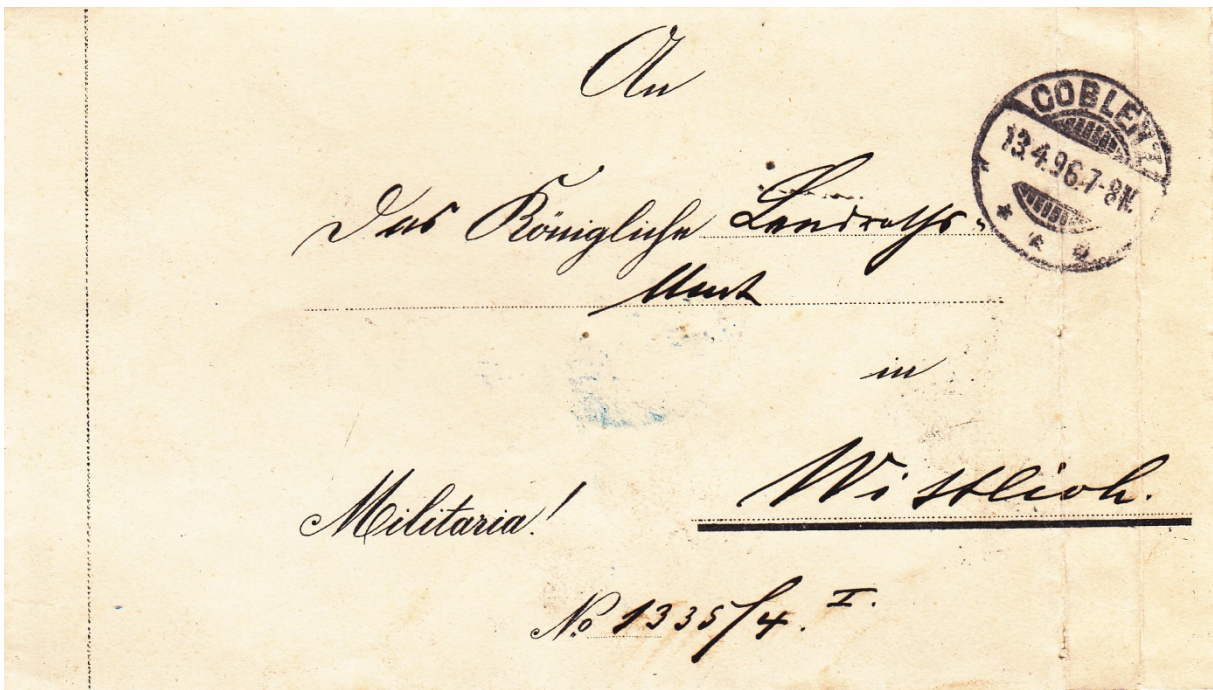 An
COBLENZ
13.4.96.7-8N.
das Königliche Landraths-
Amt
in
Militaria!
Wittlich.
No 1335/4. I.